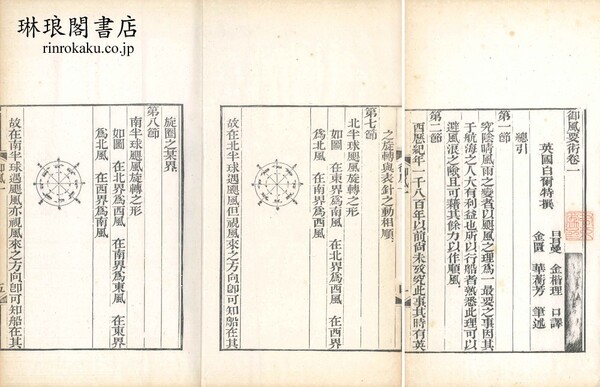 琳琅閣書店
rinrokaku.co.jp
御風要術卷一
英國白爾特撰
日耳曼 金楷理 口譯
金匱 華蘅芳 筆述
總引
第一節
究陰晴風雨之變者以颶風之理爲一最要之事因其
于航海之人大有利益也所以行船者熟悉此理可以
避風浪之險且可藉其餘力以作順風
第二節
西歷紀年一千八百年以前尚未攷究此事其時有英
之旋轉與表針之動相順
第七節
北半球颶風旋轉之形
如圖 在東界爲南風 在南界爲西風 在西界
爲北風 在北界爲東風
故在北半球遇颶風但視風來之方向卽可知船在其
旋圈之某界
第八節
南半球颶風旋轉之形
如圖 在北界爲西風 在南界爲東風 在東界
爲北風 在西界爲南風
故在南半球遇颶風亦視風來之方向卽可知船在其